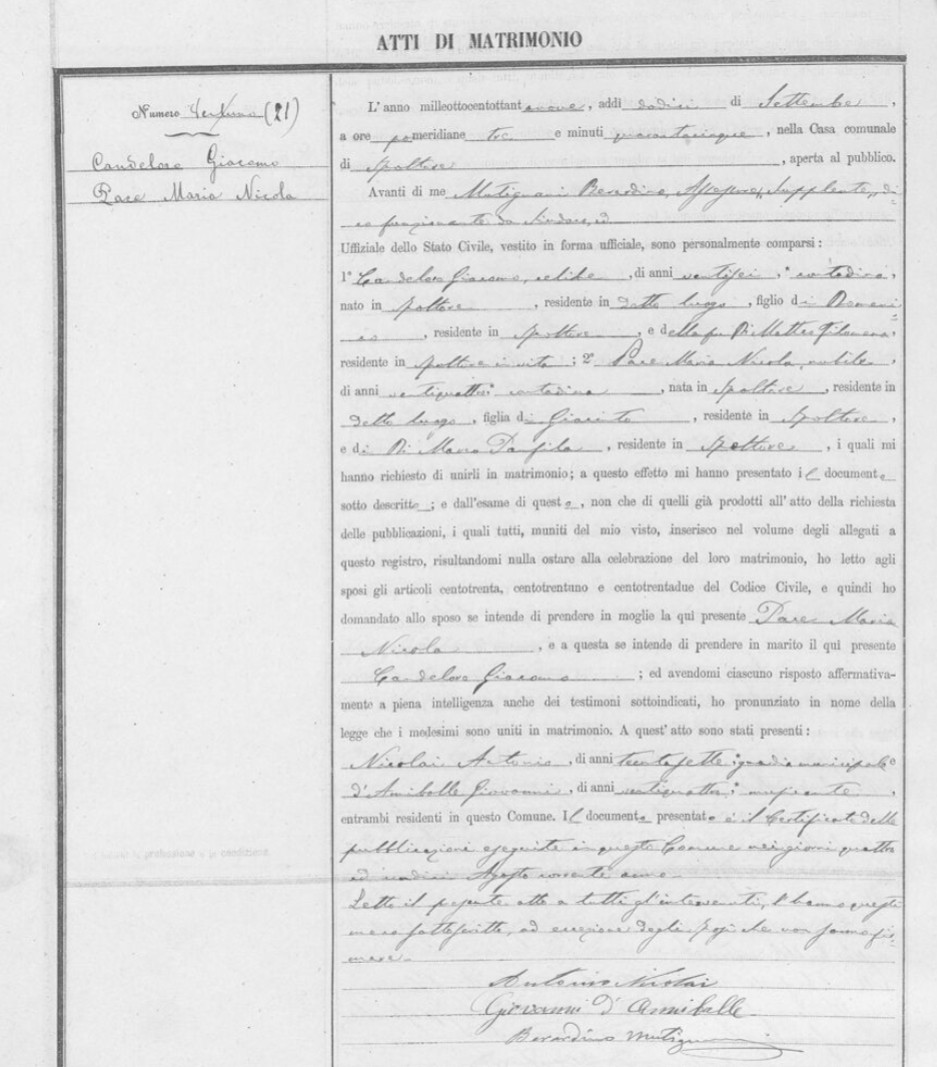 ATTI DI MATRIMONIO
Numero Ventuno (21)
Candeloro Giacomo
Pace Maria Nicola
L'anno milleottocentottantanove, addì dodici di Settembre,
a ore pomeridiane tre e minuti quarantacinque, nella Casa comunale
di Spoltore, aperta al pubblico.
Avanti di me Mutignani Berardino, Assessore Supplente, di-
co funzionante da Sindaco, ed
Uffiziale dello Stato Civile, vestito in forma ufficiale, sono personalmente comparsi:
1° Candeloro Giacomo, celibe, di anni ventisei, contadino,
nato in Spoltore, residente in detto luogo, figlio di Domeni-
co, residente in Spoltore, e della fu Di Matteo Filomena,
residente in Spoltore in vita; 2° Pace Maria Nicola, nubile,
di anni ventiquattro contadina, nata in Spoltore, residente in
detto luogo, figlia di Giacinto, residente in Spoltore,
e di Di Marco Panfila, residente in Spoltore, i quali mi
hanno richiesto di unirli in matrimonio; a questo effetto mi hanno presentato il documento
sotto descritto; e dall'esame di questo, non che di quelli già prodotti all'atto della richiesta
delle pubblicazioni, i quali tutti, muniti del mio visto, inserisco nel volume degli allegati a
questo registro, risultandomi nulla ostare alla celebrazione del loro matrimonio, ho letto agli
sposi gli articoli centotrenta, centotrentuno e centotrentadue del Codice Civile, e quindi ho
domandato allo sposo se intende di prendere in moglie la qui presente Pace Maria
Nicola, e a questa se intende di prendere in marito il qui presente
Candeloro Giacomo; ed avendomi ciascuno risposto affermativa-
mente a piena intelligenza anche dei testimoni sottoindicati, ho pronunziato in nome della
legge che i medesimi sono uniti in matrimonio. A quest'atto sono stati presenti:
Nicolai Antonio, di anni trentasette, guardia municipale e
d'Annibale Giovanni, di anni ventiquattro,
entrambi residenti in questo Comune. Il documento presentato è il Certificato delle
pubblicazioni eseguite in questo Comune nei giorni quattro
ed undici Agosto corrente anno.
Letto il presente atto a tutti gl'intervenuti, l'hanno questi
meco sottoscritto, ad eccezione degli sposi che non sanno fir-
mare.
Antonio Nicolai
Giovanni d'Annibale
Berardino Mutignani